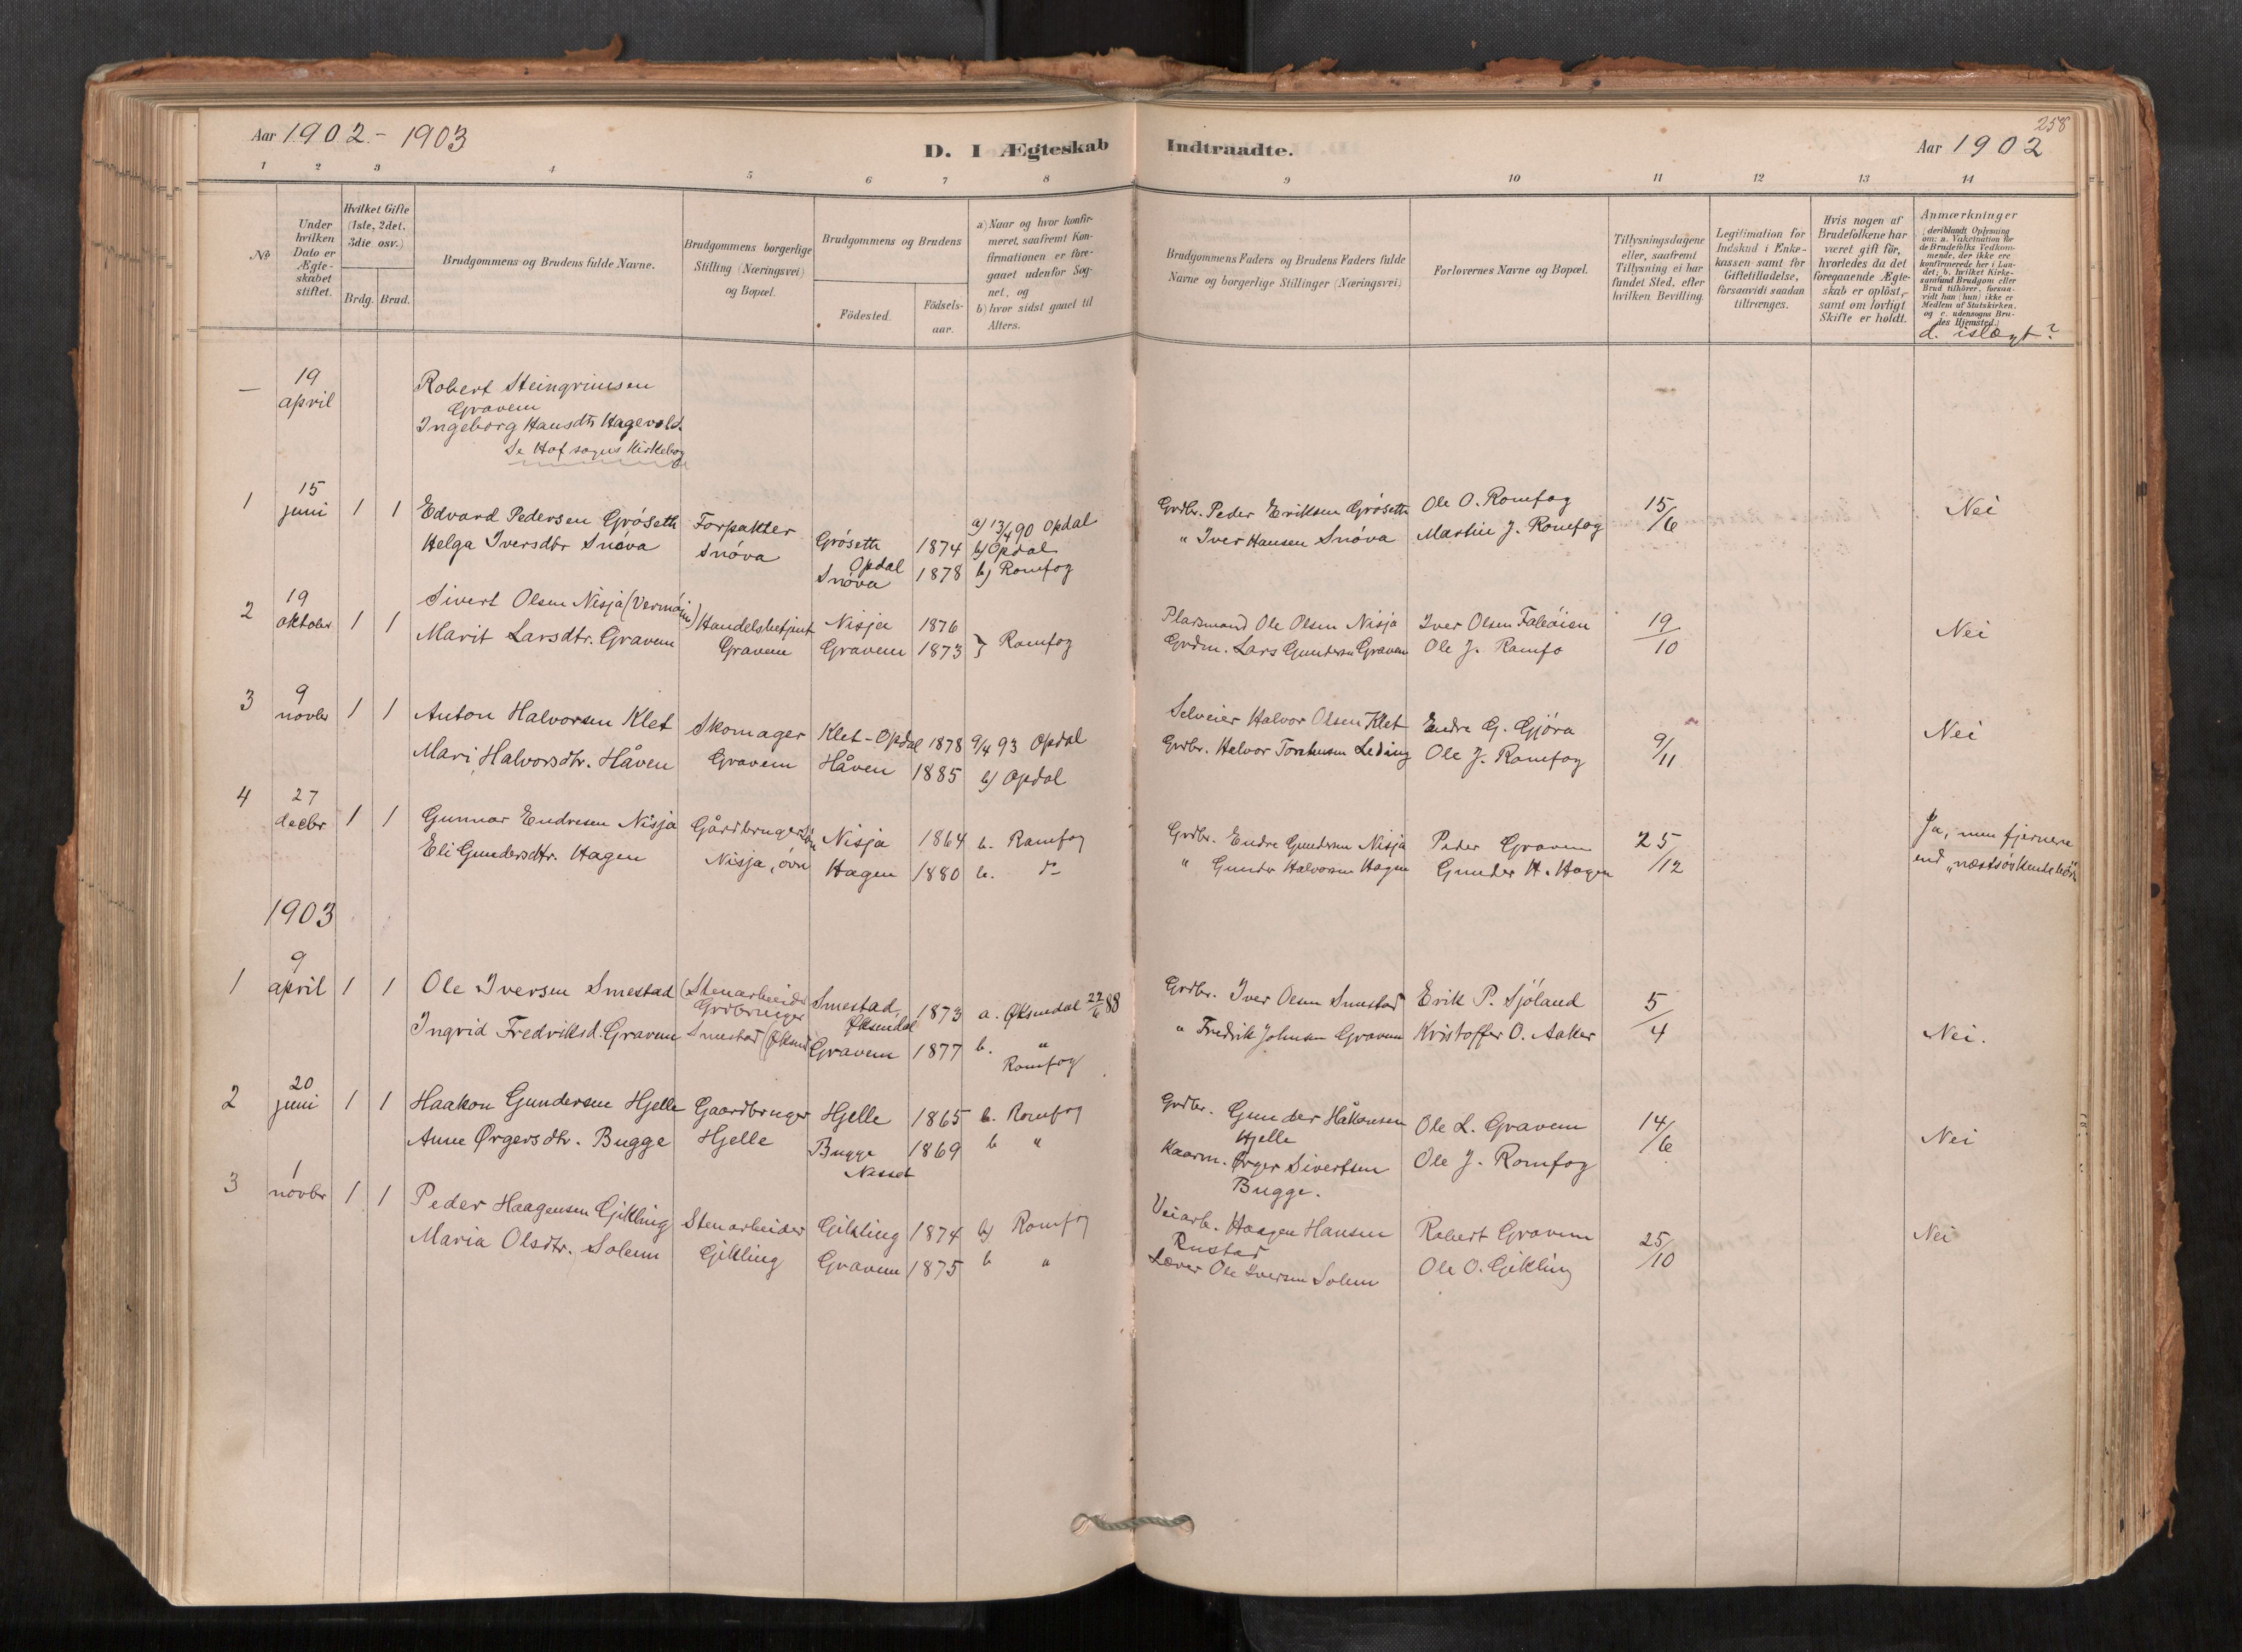 Aar 1902 - 1903
D. I Ægteskab Indtraadte.
258
Aar 1902
1 2 3 4 5 6 7 8 9 10 11 12 13 14
No.
Under hvilken Dato er Ægteskabet stiftet.
Hvilket Gifte (1ste, 2det, 3die osv.)
Brdg. Brud.
Brudgommens og Brudens fulde Navne.
Brudgommens borgerlige Stilling (Næringsvei) og Bopæl.
Brudgommens og Brudens
Födested.
Födselsaar.
a) Naar og hvor konfirmeret, saafremt Konfirmationen er foregaaet udenfor Sognet, og
b) hvor sidst gaaet til Alters.
Brudgommens Faders og Brudens Faders fulde Navne og borgerlige Stillinger (Næringsvei)
Forlovernes Navne og Bopæl.
Tillysningsdagene eller, saafremt Tillysning ei har fundet Sted, efter hvilken Bevilling.
Legitimation for Indskud i Enkekassen samt for Giftetilladelse, forsaavidt saadan tiltrænges.
Hvis nogen af Brudefolkene har været gift för, hvorledes da det foregaaende Ægteskab er oplöst, samt om lovligt Skifte er holdt.
Anmærkninger (deriblandt Oplysning om: a. Vakcination for de Brudefolks Vedkommende, der ikke ere konfirmerede her i Landet; b. hvilket Kirkesamfund Brudgom eller Brud tilhörer, forsaavidt han (hun) ikke er Medlem af Statskirken, og c. udensogns Brudes Hjemsted.)
d. islægt?
— 19 april Robert Steingrimsen
Gravem
Ingeborg Hansdtr Hagevold.
Se Hof sogns Kirkebog
1 15 juni 1 1 Edvard Pedersen Gröseth Forpakter Gröseth Opdal 1874 a) 13/4 90 Opdal b) Opdal Grdbr. Peder Eriksen Gröseth Ole O. Romfog 15/6 Nei
Helga Iversdtr Snöva Snöva Snöva 1878 b) Romfog " Iver Hansen Snöva Martin J. Romfog
2 19 oktober 1 1 Sivert Olsen Nisja Handelsbetjent Nisja 1876 } Romfog Pladsmand Ole Olsen Nisja Iver Olsen 19/10 Nei
Marit Larsdtr. Gravem Gravem Gravem 1873 Grdm. Lars Gundersen Gravem Ole J. Romfo
3 9 novbr 1 1 Anton Halvorsen Klet Skomager Klet - Opdal 1878 9/4 93 Opdal Selveier Halvor Olsen Klet Endre G. Gjöra 9/11 Nei
Mari Halvorsdtr. Håven Gravem Håven 1885 b) Opdal Grdbr. Halvor Leding Ole J. Romfog
4 27 decbr 1 1 Gunnar Endresen Nisja Gårdbruger Nisja 1864 b. Romfog Grdbr. Endre Gundersen Nisja Peder Gravem 25/12 Ja, men fjernere
Eli Gundersdtr. Hagen Nisja, övr Hagen 1880 b. do " Gunder Halvorsen Hagen Gunder H. Hagen end "næstsöskendebörn
1903
1 9 april 1 1 Ole Iversen Smestad (Stenarbeider Grdbruger Smestad, Öksendal 1873 a. Öksendal 22/6 88 Grdbr. Iver Olsen Smestad Erik P. Sjöland 5/4 Nei.
Ingrid Fredriksd. Gravem Smestad (Öksend Gravem 1877 b. " Romfog " Fredrik Johnsen Gravem Kristoffer O. Aaker
2 20 juni 1 1 Haakon Gundersen Hjelle Gaardbruger Hjelle 1865 b. Romfog Grdbr. Gunder Håkonsen Hjelle Ole L. Gravem 14/6 Nei
Anne Ørgersdtr. Bugge Hjelle Bugge Nesset 1869 b " Kaarm. Ørger Sivertsen Bugge. Ole J. Romfog
3 1 novbr 1 1 Peder Haagensen Gikling Stenarbeider Gikling 1874 b) Romfog Veiarb. Haagen Hansen Rustad Robert Gravem 25/10 Nei
Maria Olsdtr. Solem Gikling Gravem 1875 b " Ole Iversen Solem Ole O. Gikling